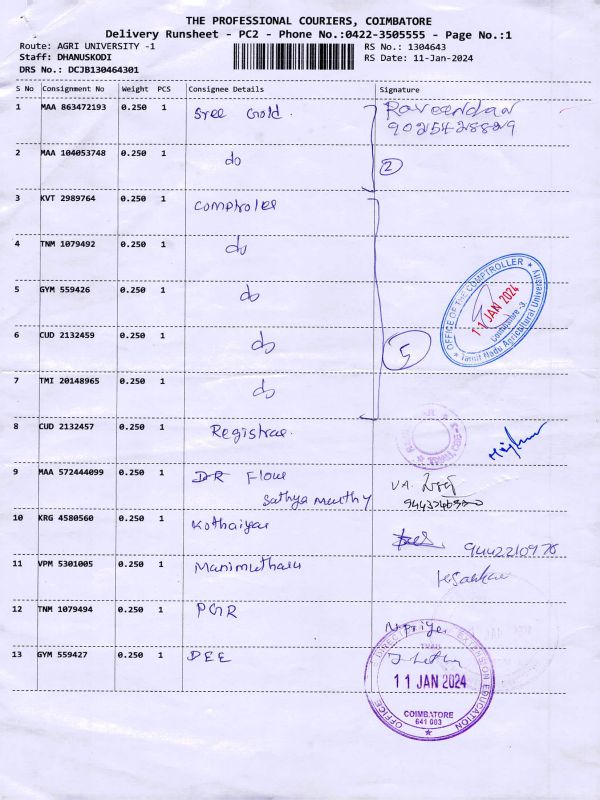 THE PROFESSIONAL COURIERS, COIMBATORE
Delivery Runsheet - PC2 - Phone No.:0422-3505555 - Page No.:1
Route: AGRI UNIVERSITY -1
RS No.: 1304643
Staff: DHANUSKODI
RS Date: 11-Jan-2024
DRS No.: DCJB130464301
S No Consignment No Weight PCS Consignee Details Signature
1 MAA 863472193 0.250 1 Sree Gold.
2 MAA 104053748 0.250 1 do
2
3 KVT 2989764 0.250 1 Comptroller
4 TNM 1079492 0.250 1 do
5 GYM 559426 0.250 1 do
OFFICE OF THE COMPTROLLER
11 JAN 2024
Coimbatore -3
Tamil Nadu Agricultural University
6 CUD 2132459 0.250 1 do
5
7 TMI 20148965 0.250 1 do
8 CUD 2132457 0.250 1 Registrar.
9 MAA 572444099 0.250 1 DR Flour
Sathya Murthy
V.A.
10 KRG 4580560 0.250 1 Kothaiyar
9442210976
11 VPM 5301005 0.250 1 Manimutharu
12 TNM 1079494 0.250 1 PGR
N.priya
13 GYM 559427 0.250 1 DEE
EXTENSION EDUCATION
TNAU
11 JAN 2024
COIMBATORE
641 003
OFFICE